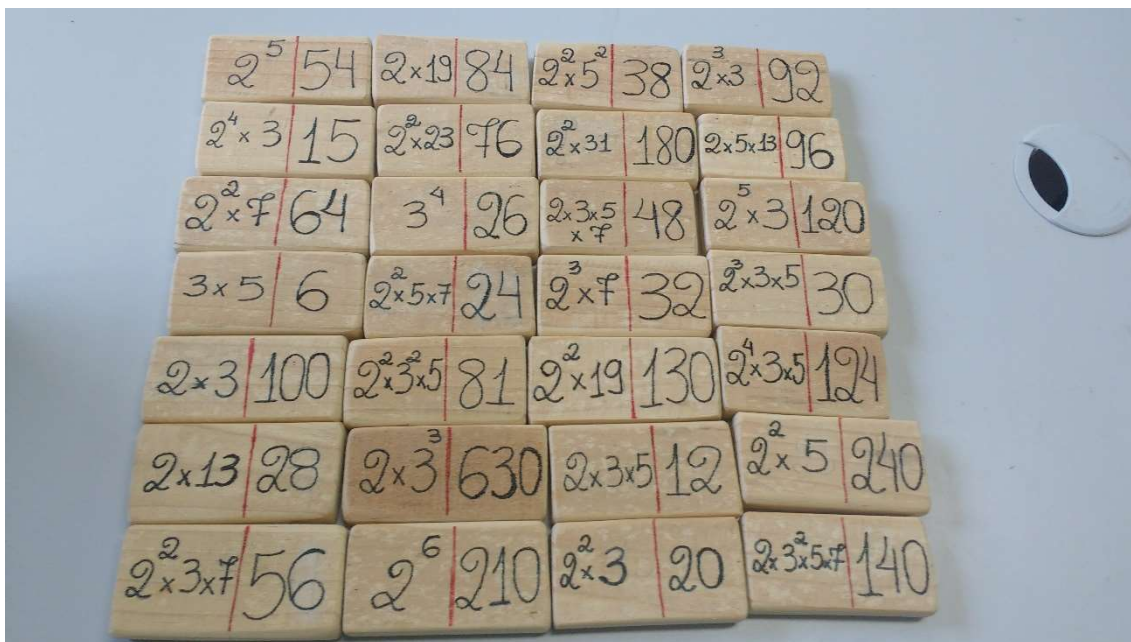 2⁵ | 54 2×19 | 84 2²×5² | 38 2³×3 | 92
2⁴×3 | 15 2²×23 | 76 2²×31 | 180 2×5×13 | 96
2²×7 | 64 3⁴ | 26 2×3×5×7 | 48 2⁵×3 | 120
3×5 | 6 2²×5×7 | 24 2³×7 | 32 2³×3×5 | 30
2×3 | 100 2²×3²×5 | 81 2²×19 | 130 2⁴×3×5 | 124
2×13 | 28 2×3³ | 630 2×3×5 | 12 2²×5 | 240
2²×3×7 | 56 2⁶ | 210 2²×3 | 20 2×3²×5×7 | 140